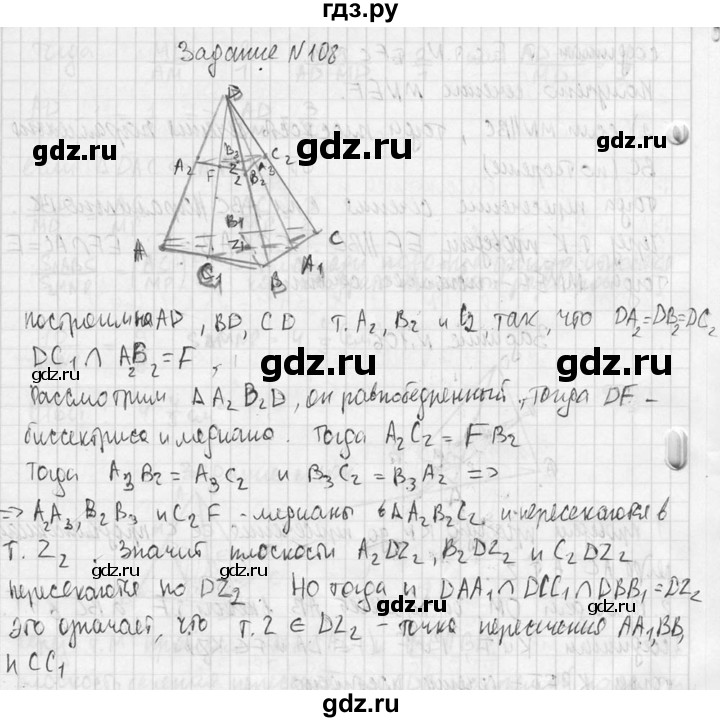 гдз.ру
Задание N108
D
gdz.ru gdz.ru
A2 F B3 C2
Z2 B2 A3
B1
A Z C
C1 B A1
gdz.ru gdz.ru
построим на AD, BD, CD т. A2, B2 и C2 так, что DA2=DB2=DC2
DC1 ∩ A2B2 = F,
gdz.ru gdz.ru
Рассмотрим Δ A2B2D, он равнобедренный, тогда DF –
биссектриса и медиана. Тогда A2C2 = FB2
gdz.ru gdz.ru
Тогда A3B2 = A3C2 и B3C2 = B3A2 =>
=> A2A3, B2B3 и C2F - медианы в ΔA2B2C2 и пересекаются в
gdz.ru gdz.ru
т. Z2. Значит плоскости A2DZ2, B2DZ2 и C2DZ2
gdz.ru gdz.ru
пересекаются по DZ2. Но тогда и DAA1 ∩ DCC1 ∩ DBB1 = DZ2
это означает, что т. Z ∈ DZ2 - точка пересечения AA1 BB1
и CC1
gdz.ru gdz.ru